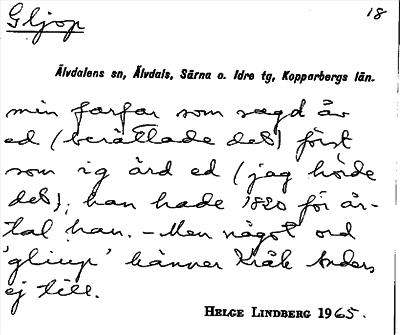 Gljop
18
Älvdalens sn, Älvdals, Särna o. Idre tg, Kopparbergs län.
min farfar som sægd åv
ed (berättade det) först
som ig ärd ed (jag hörde
det); han hade 1820 för år-
tal han. – Men något ord
'gliup' känner Kråk Anders
ej till.
HELGE LINDBERG 1965.